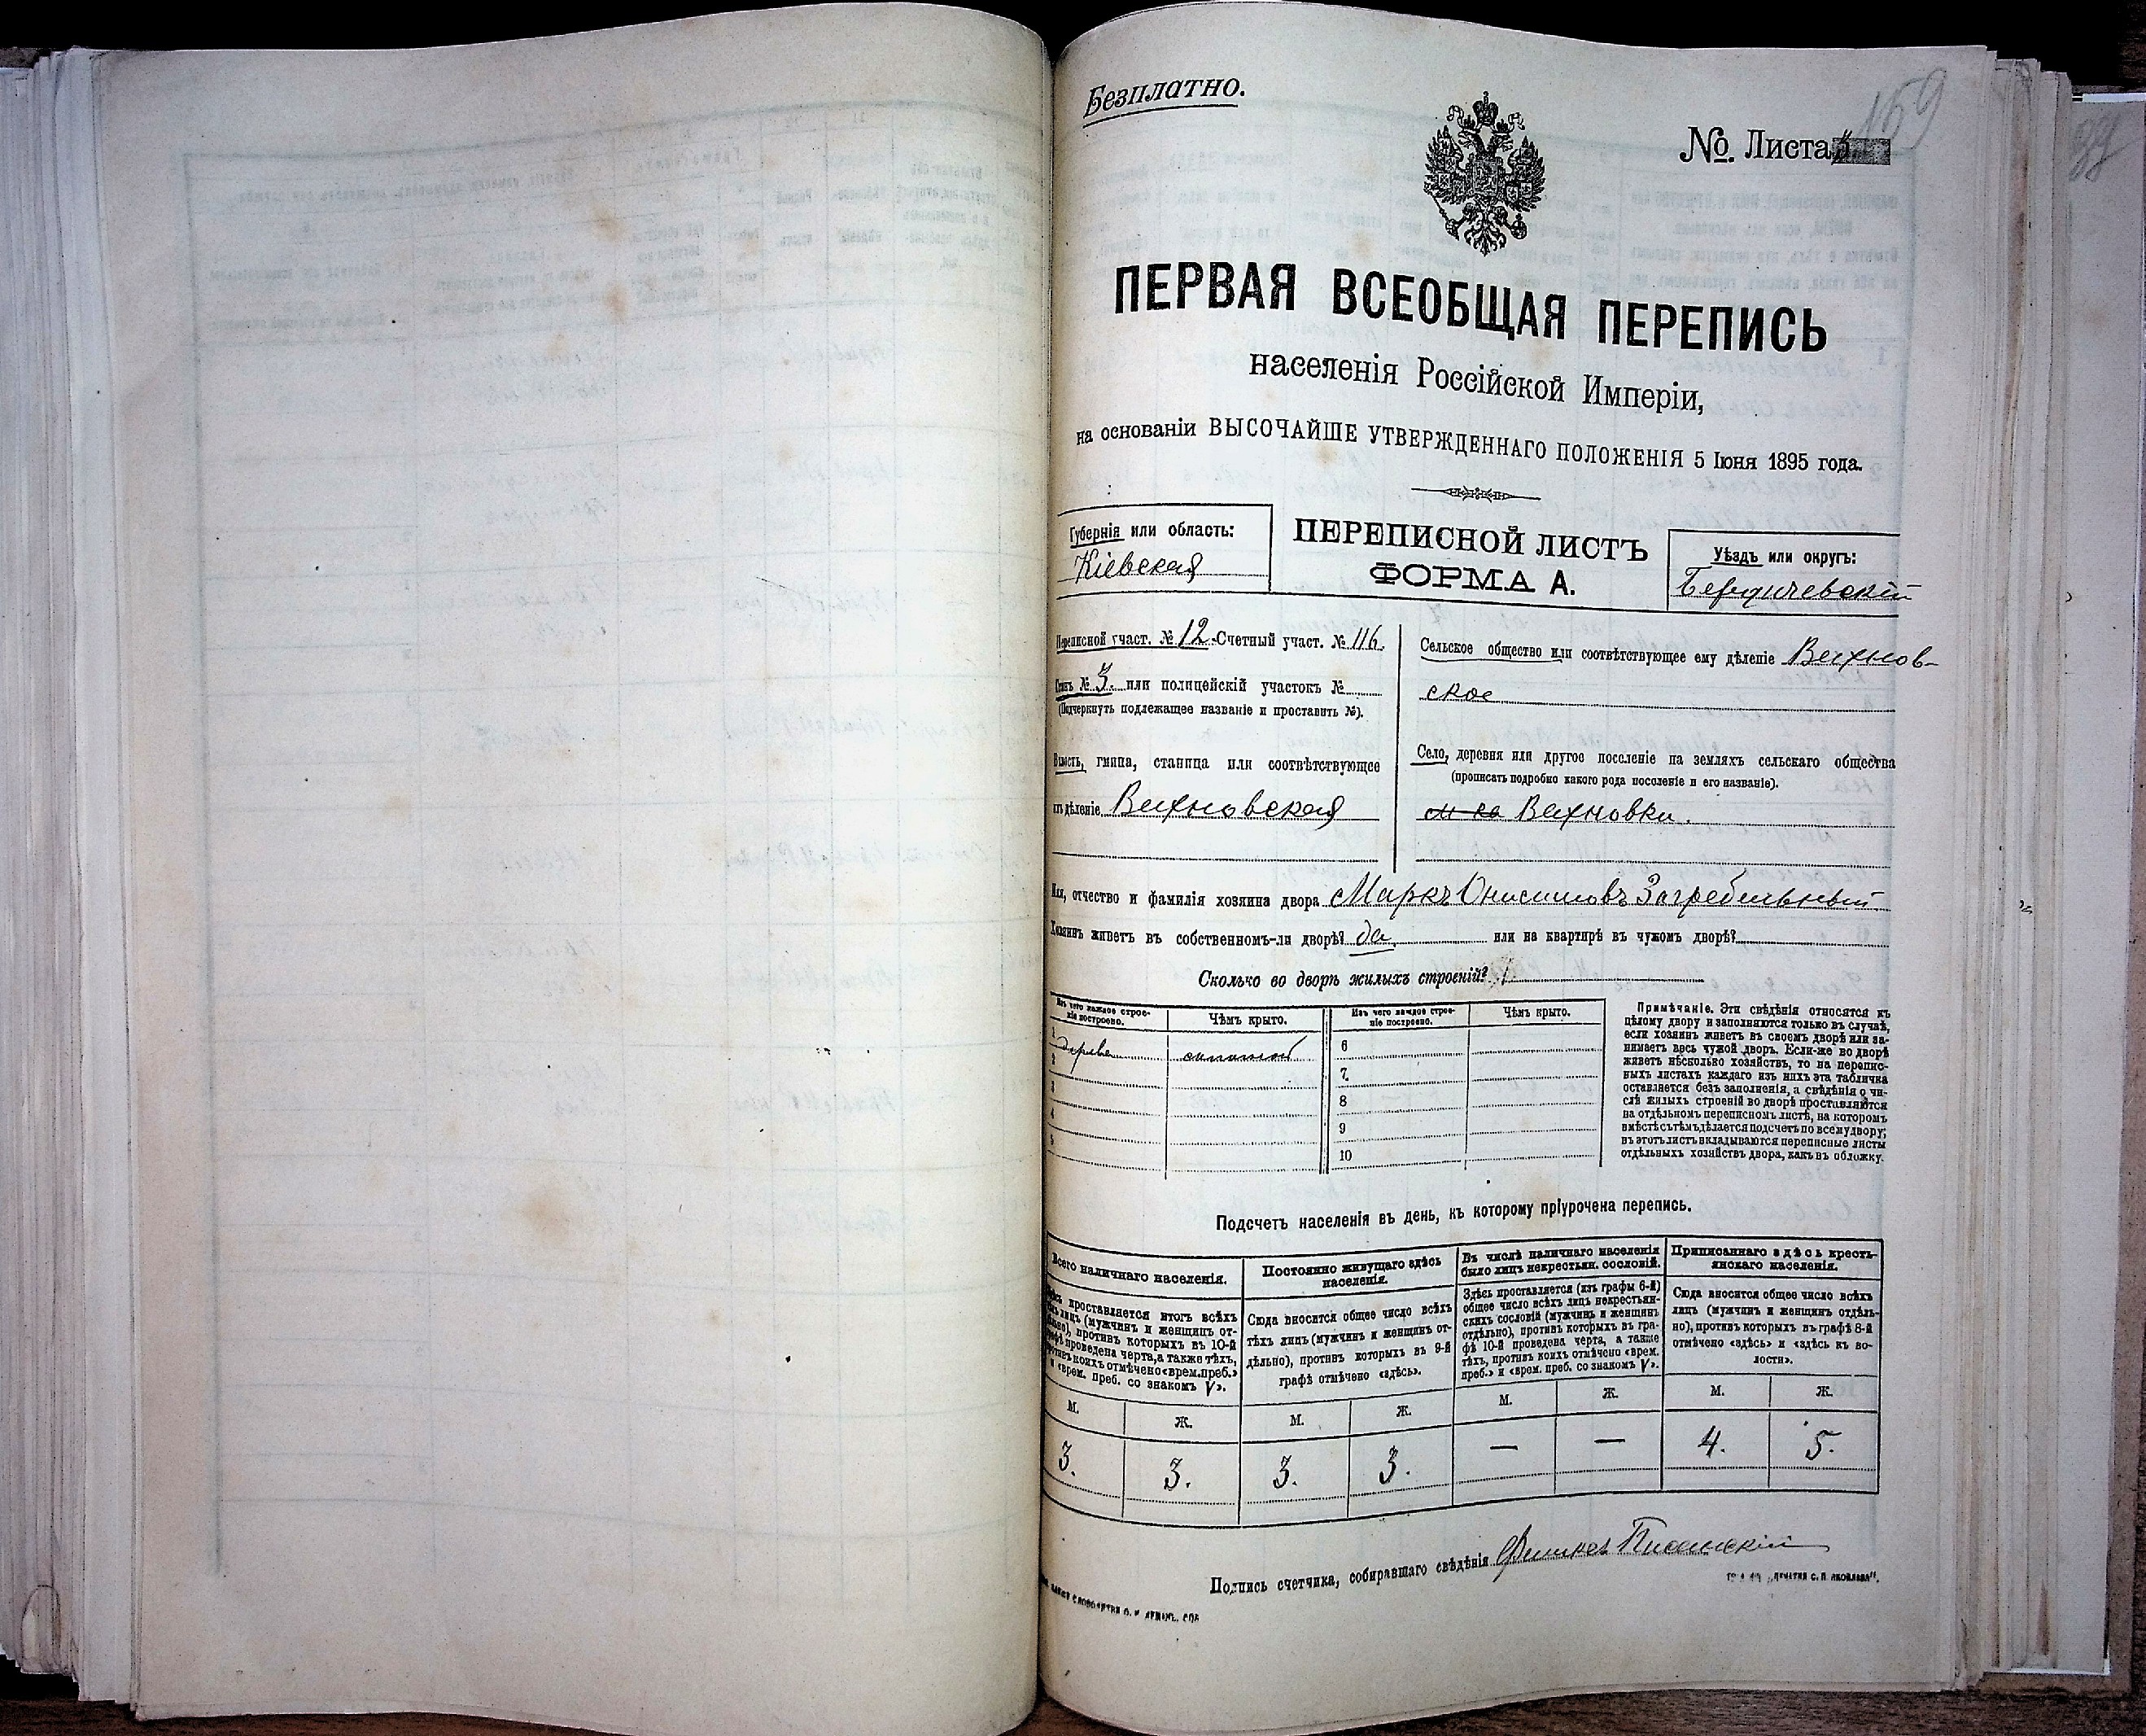 Безплатно.
159
№ Листа
ПЕРВАЯ ВСЕОБЩАЯ ПЕРЕПИСЬ
населенія Россійской Имперіи,
на основаніи ВЫСОЧАЙШЕ УТВЕРЖДЕННАГО ПОЛОЖЕНІЯ 5 Іюня 1895 года.
Губернія или область:
Кіевская
ПЕРЕПИСНОЙ ЛИСТЪ
ФОРМА А.
Уѣздъ или округъ:
Бердичевскій
Переписной участ. № 12. Счетный участ. № 116.
Станъ № 3. или полицейскій участокъ №
(Подчеркнуть подлежащее названіе и проставить №).
Волость, гмина, станица или соотвѣтствующее
имъ дѣленіе Вахновская
Сельское общество или соотвѣтствующее ему дѣленіе Вахнов-
ское
Село, деревня или другое поселеніе на земляхъ сельскаго общества
(прописать подробно какого рода поселеніе и его названіе).
м-ко Вахновки.
Имя, отчество и фамилія хозяина двора Маркъ Онисимовъ Загребельный
Хозяинъ живетъ въ собственномъ-ли дворѣ? да или на квартирѣ въ чужомъ дворѣ?
Сколько во дворѣ жилыхъ строеній? 1
Изъ чего каждое строе-
ніе построено.
Чѣмъ крыто.
Изъ чего каждое строе-
ніе построено.
Чѣмъ крыто.
1 дерева соломой
2
3
4
5
6
7
8
9
10
Примѣчаніе. Эти свѣдѣнія относятся къ
цѣлому двору и заполняются только въ случаѣ,
если хозяинъ живетъ въ своемъ дворѣ или за-
нимаетъ весь чужой дворъ. Если-же во дворѣ
живетъ нѣсколько хозяйствъ, то на перепис-
ныхъ листахъ каждаго изъ нихъ эта табличка
оставляется безъ заполненія, а свѣдѣнія о чи-
слѣ жилыхъ строеній во дворѣ проставляются
на отдѣльномъ переписномъ листѣ, на которомъ
вмѣстѣ съ тѣмъ дѣлается подсчетъ по всему двору;
въ этотъ листъ вкладываются переписные листы
отдѣльныхъ хозяйствъ двора, какъ въ обложку.
Подсчетъ населенія въ день, къ которому пріурочена перепись.
Всего наличнаго населенія.
Здѣсь проставляется итогъ всѣхъ
тѣхъ лицъ (мужчинъ и женщинъ от-
дѣльно), противъ которыхъ въ 10-й
графѣ проведена черта, а также тѣхъ,
противъ коихъ отмѣчено «врем. преб.»
и «врем. преб. со знакомъ V».
Постоянно живущаго здѣсь
населенія.
Сюда вносится общее число всѣхъ
тѣхъ лицъ (мужчинъ и женщинъ от-
дѣльно), противъ которыхъ въ 9-й
графѣ отмѣчено «здѣсь».
Въ числѣ наличнаго населенія
было лицъ некрестьян. сословій.
Здѣсь проставляется (изъ графы 6-й)
общее число всѣхъ лицъ некрестьян-
скихъ сословій (мужчинъ и женщинъ
отдѣльно), противъ которыхъ въ гра-
фѣ 10-й проведена черта, а также
тѣхъ, противъ коихъ отмѣчено «врем.
преб.» и «врем. преб. со знакомъ V».
Приписаннаго здѣсь кресть-
янскаго населенія.
Сюда вносится общее число всѣхъ
лицъ (мужчинъ и женщинъ отдѣль-
но), противъ которыхъ въ графѣ 8-й
отмѣчено «здѣсь» и «здѣсь къ во-
лости».
М. Ж. М. Ж. М. Ж. М. Ж.
3. 3. 3. 3. — — 4. 5.
Подпись счетчика, собиравшаго свѣдѣнія Феликсъ